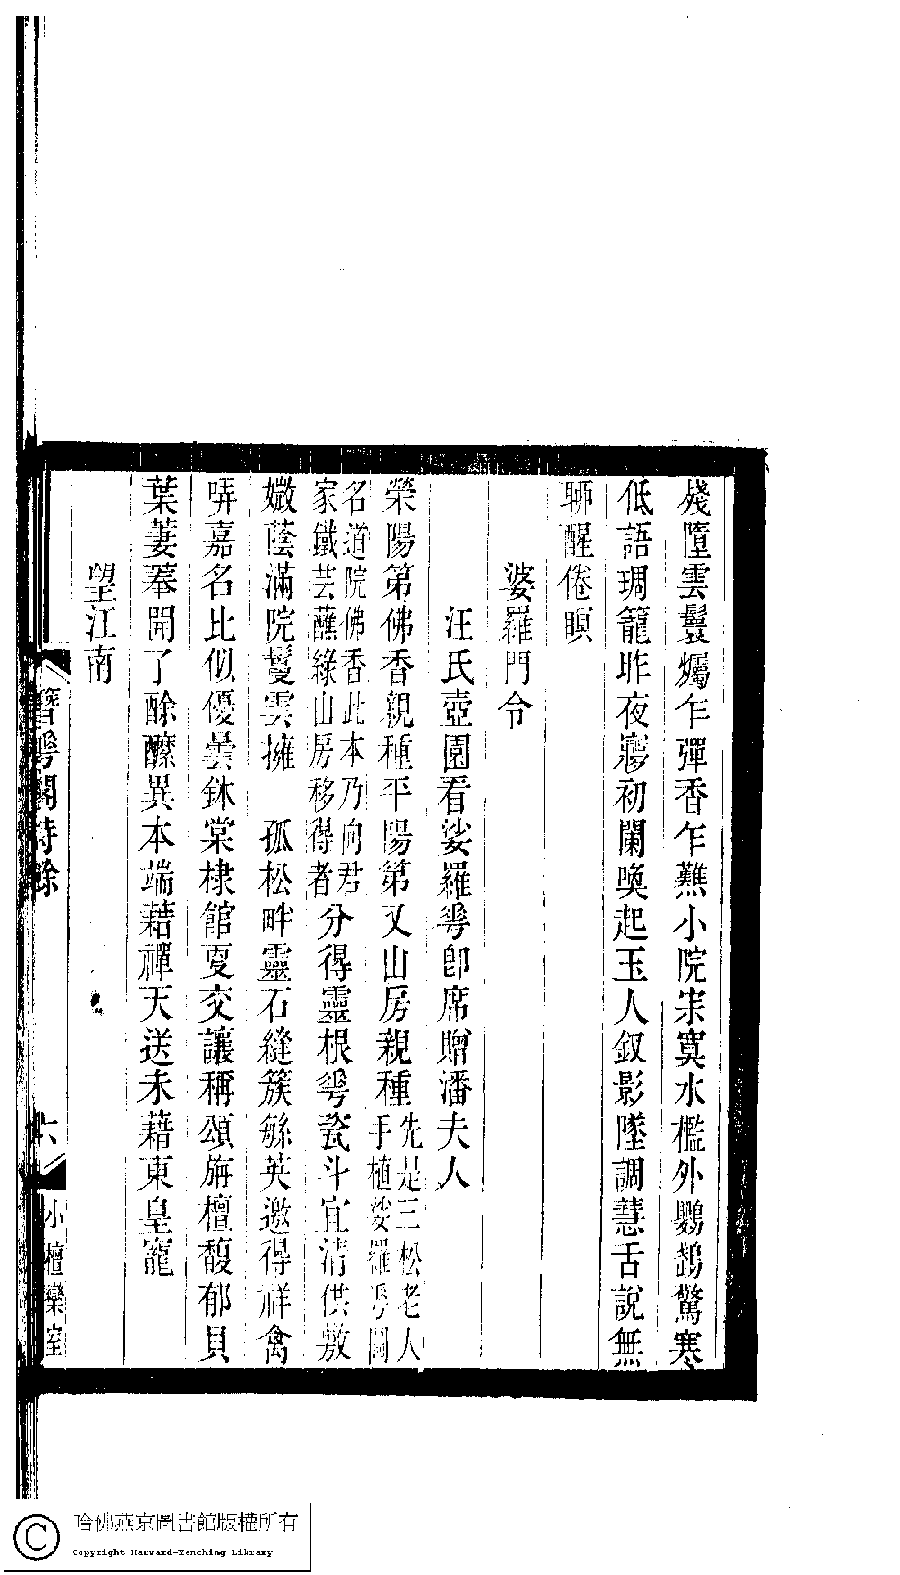 殘墮雲鬟爥乍彈香乍爇小院寀寞水檻外鸚鵡驚寒
低語琱籠昨夜寱初闌喚起玉人釵影墜調慧舌說無
聊醒倦瞑
婆羅門令
汪氏壺園看娑羅蕚卽席贈潘夫人
榮陽第佛香親種平陽第又山房親種先是三松老人
手植娑羅蕚圖
名道院佛香此本乃向君
家鐵芸蘸綠山房移得者分得靈根蕚瓷斗宜淸供敷
媺蔭滿院鬘雲擁 孤松畔靈石縫簇緐英邀得祥禽
哢嘉名比似優曇鉢棠棣館夏交讓稱頌旃檀馥郁貝
葉萋菶開了酴醾異本端藉禪天送未藉東皇寵
望江南
簪蕚閣詩餘
六
小檀欒室
哈佛燕京圖書館版權所有
Copyright Harvard-Yenching Library